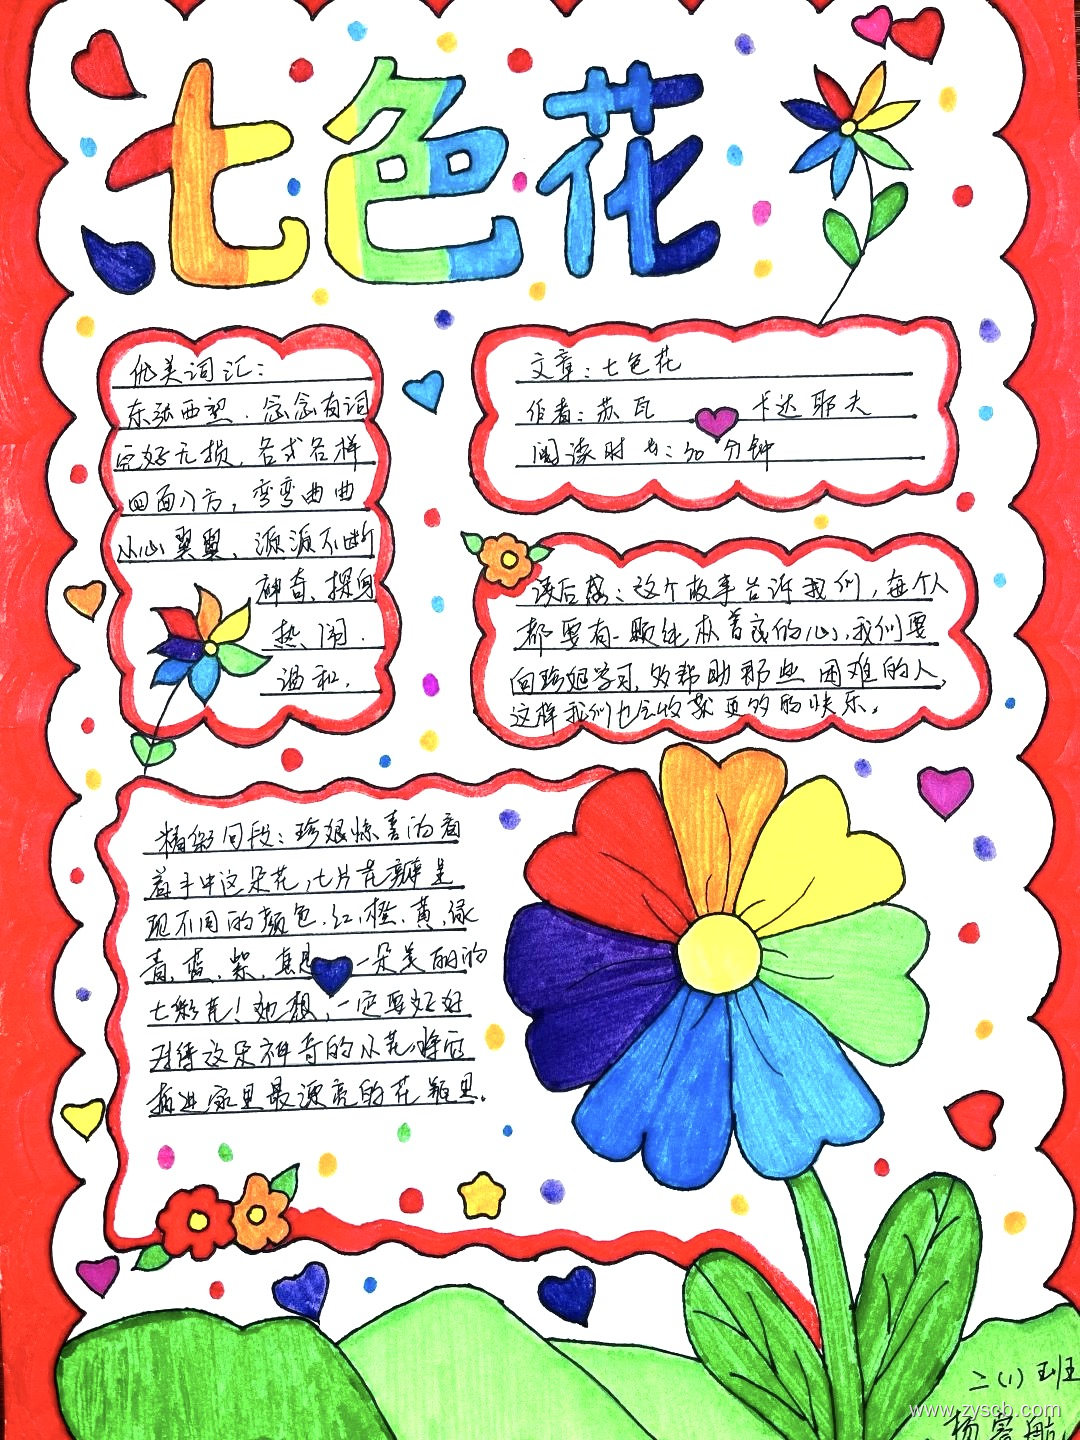 七色花
优美词汇：
东张西望.念念有词
完好无损，各式各样
四面八方，弯弯曲曲
小心翼翼、源源不断
神奇、探身
热闹.
温和.
文章：七色花
作者：苏瓦 卡达耶夫
阅读时长：30分钟
读后感：这个故事告诉我们，每个人
都要有一颗纯朴善良的心，我们要
向珍妮学习，多帮助那些困难的人，
这样我们也会收获更多的快乐。
精彩句段：珍妮惊喜的看
着手中这朵花，七片花瓣呈
现不同的颜色.红、橙、黄、绿
青、蓝、紫.真是一朵美丽的
七彩花！她想，一定要好好
对待这朵神奇的小花，将它
插进家里最漂亮的花瓶里。
二（1）班
杨客航
www.zyscb.com